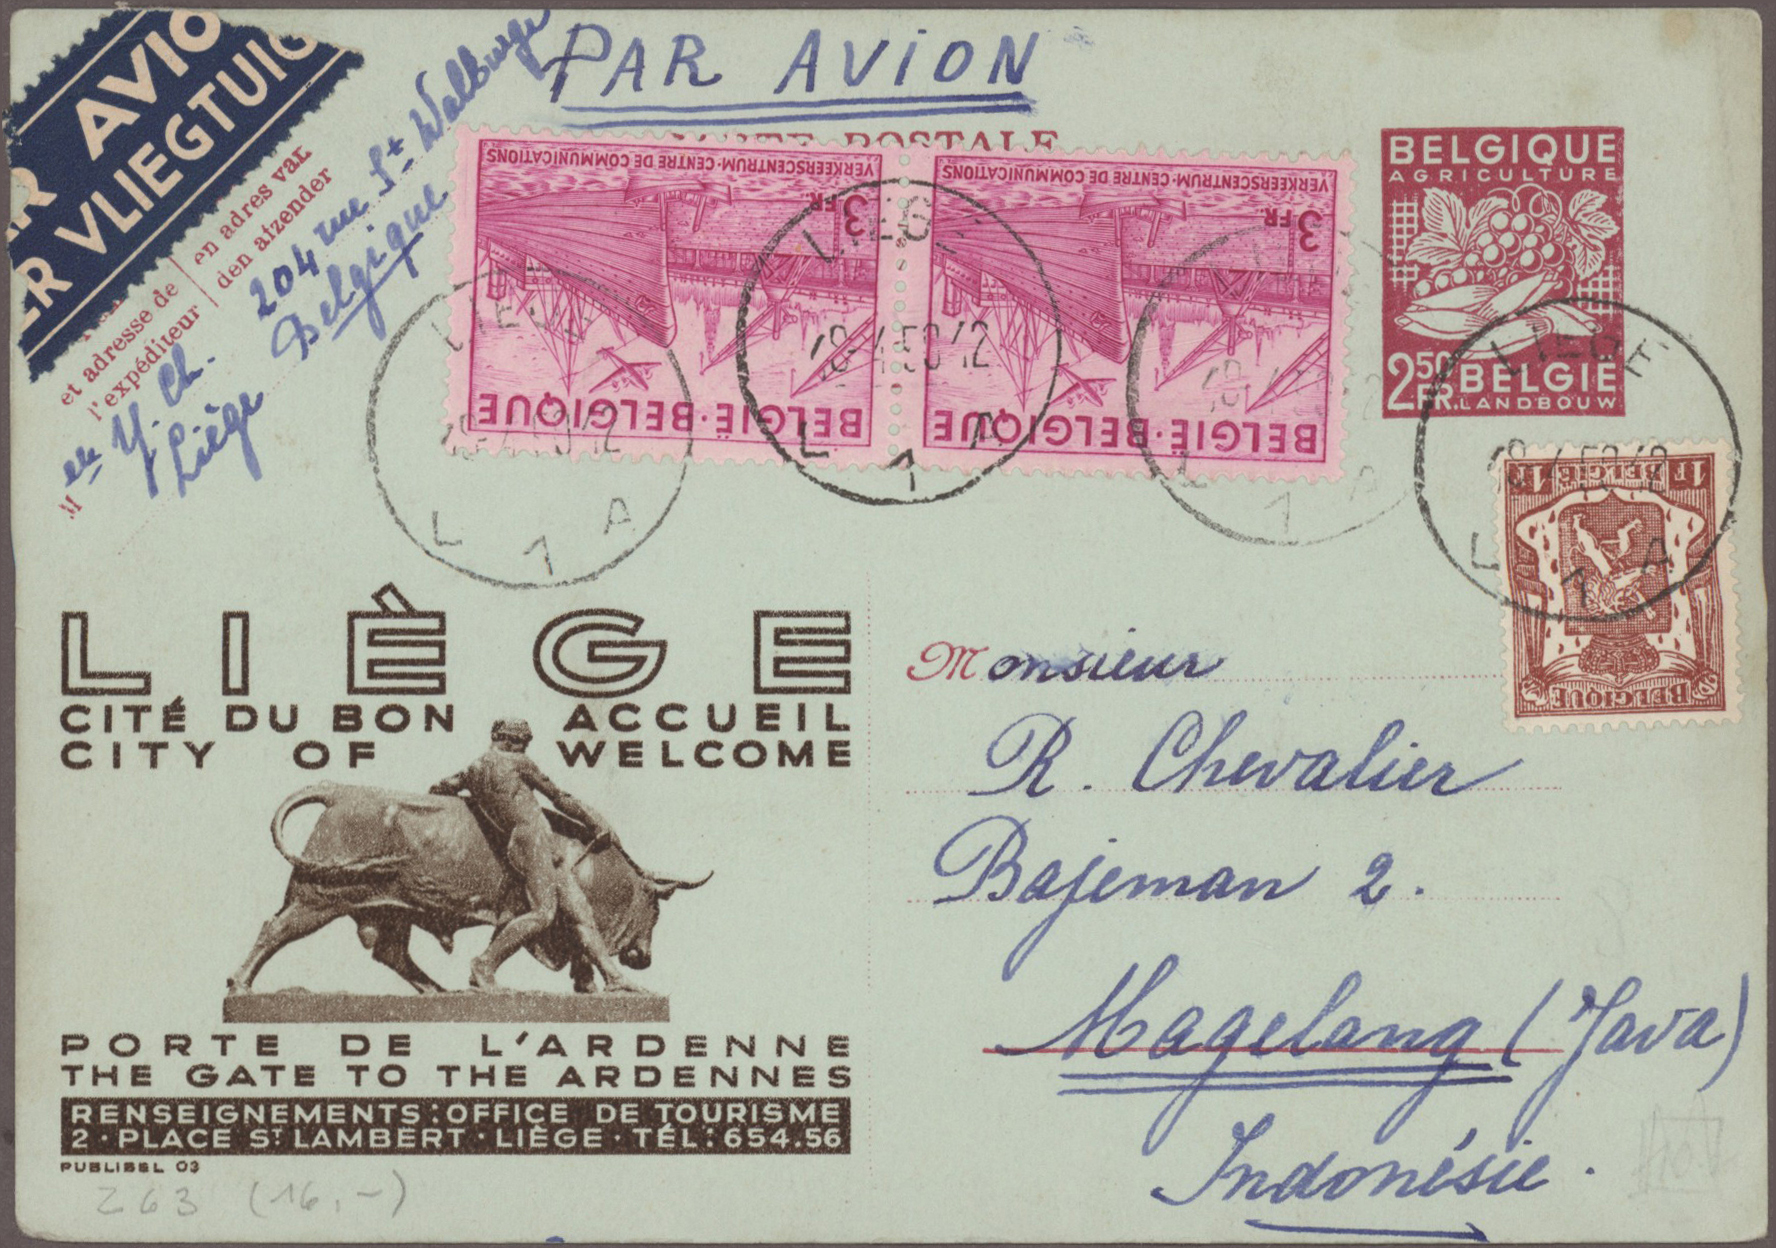 AVIO
VLIEGTUIG
PAR AVION
POSTALE
et adresse de
l'expéditeur
en adres van
den afzender
204 rue St Walburge
Belgique
M elle Y. Ch.
Liège
VERKEERSCENTRUM·CENTRE DE COMMUNICATIONS
3 FR.
BELGIE·BELGIQUE
VERKEERSCENTRUM·CENTRE DE COMMUNICATIONS
3 FR.
BELGIË·BELGIQUE
BELGIQUE
AGRICULTURE
2.50 FR.
BELGIE
LANDBOUW
LIEGE
L 1 A
LIEGE
18-4-50 12
L 1 A
L 1 A
LIEGE
L 1 A
1F BELGIË 1F
BELGIQUE
LIÈGE
CITÉ DU BON ACCUEIL
CITY OF WELCOME
PORTE DE L'ARDENNE
THE GATE TO THE ARDENNES
RENSEIGNEMENTS : OFFICE DE TOURISME
2 · PLACE ST LAMBERT · LIÈGE · TÉL : 654.56
PUBLIBEL 03
263 (16,-)
Monsieur
R. Chevalier
Bajeman 2.
Magelang (Java)
Indonésie.